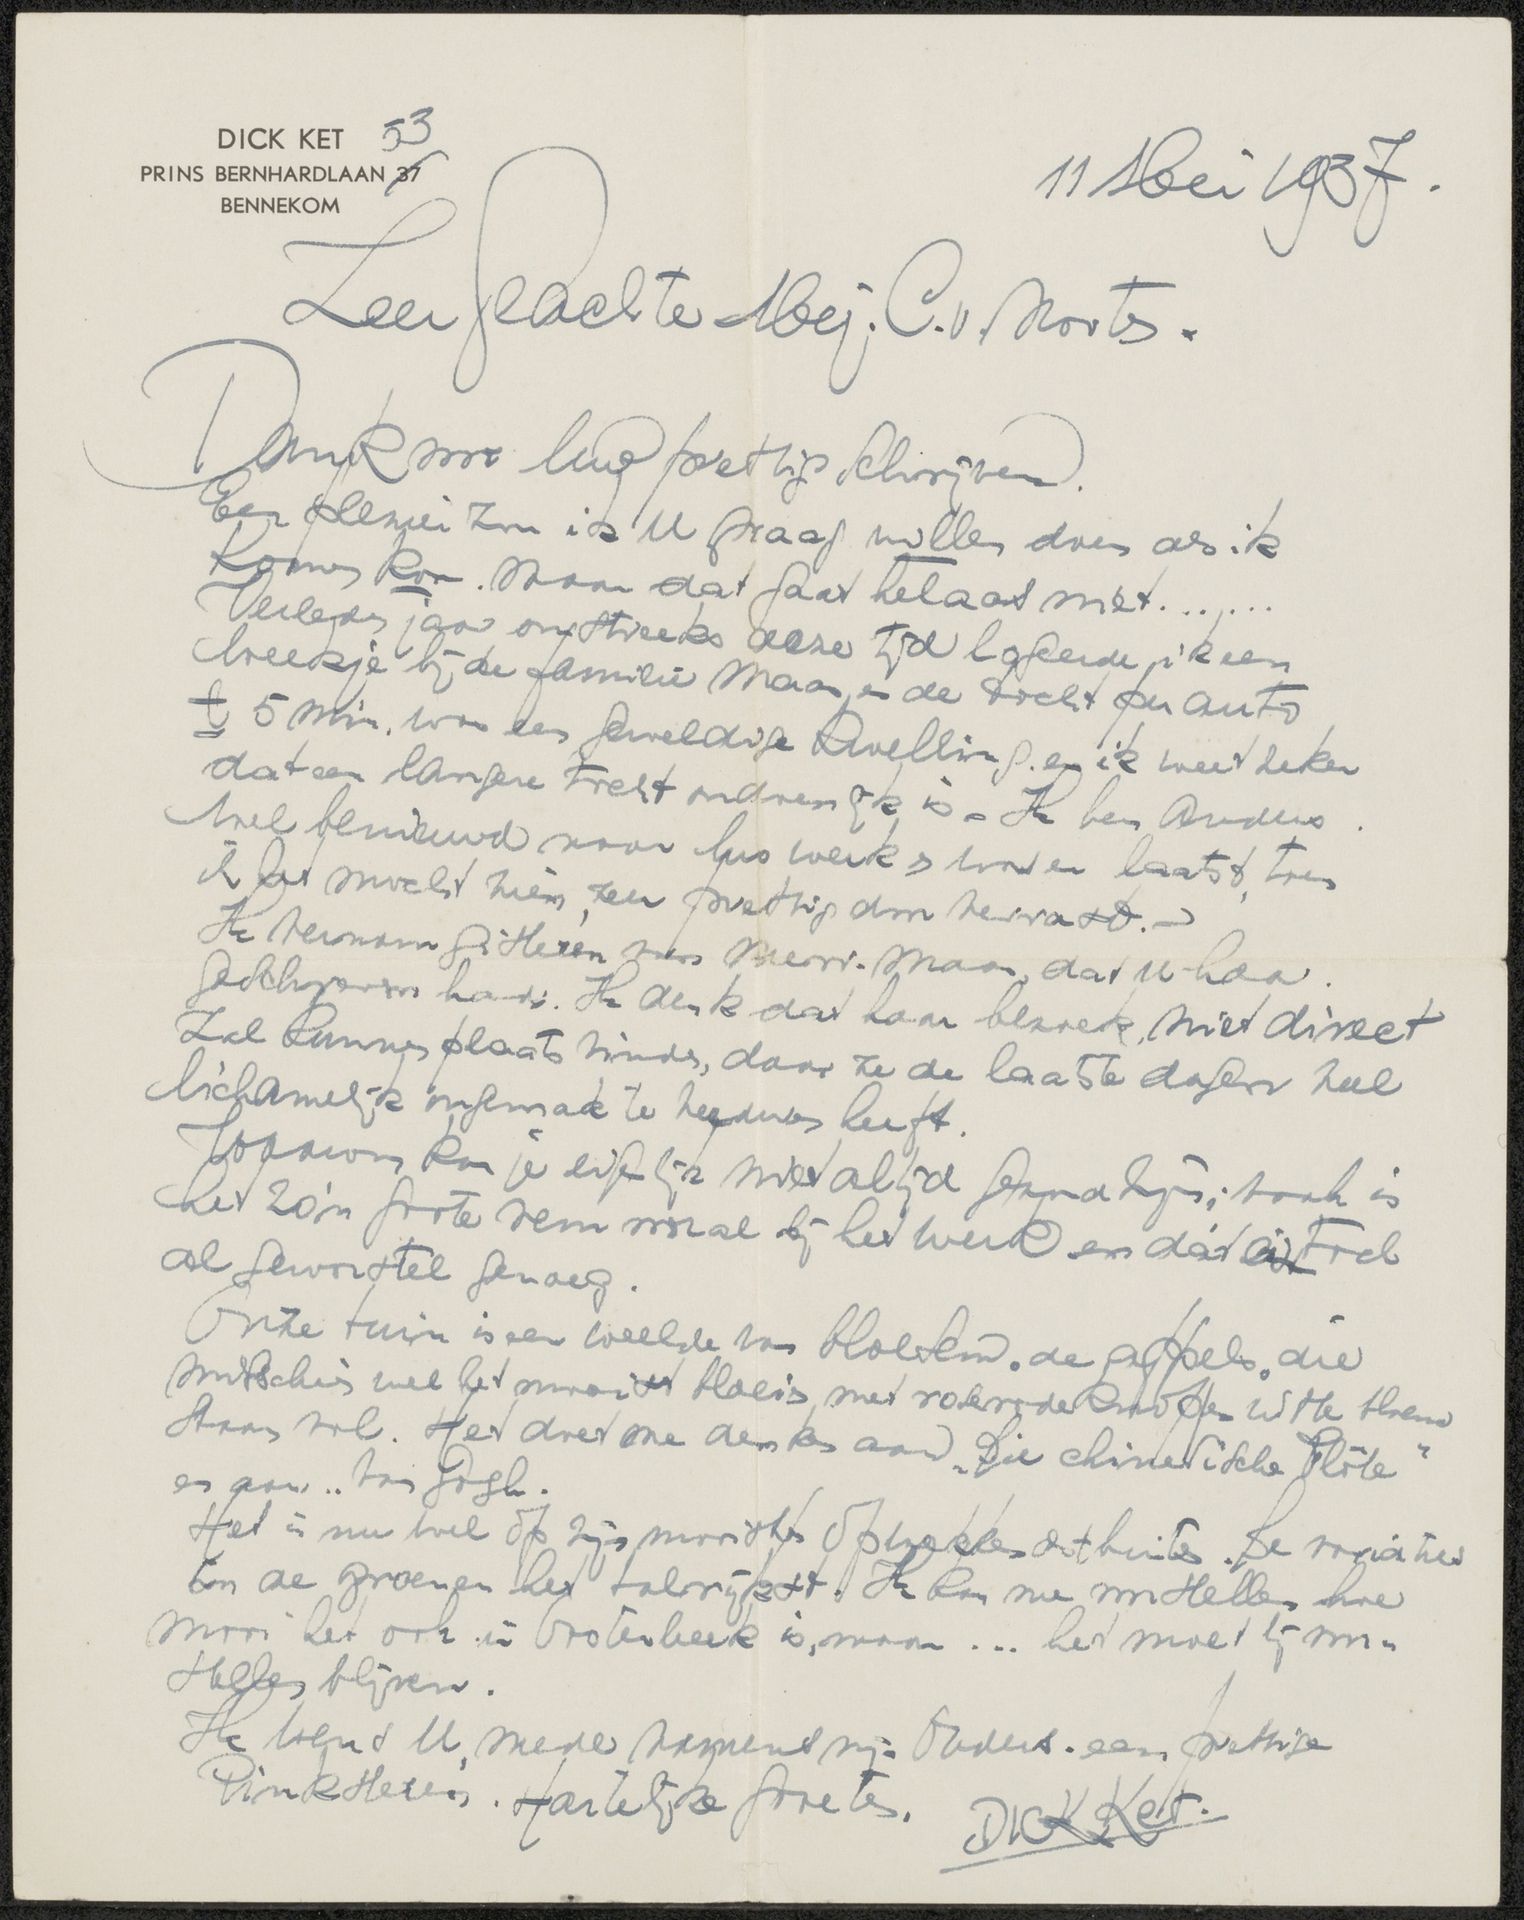 DICK KET 53
PRINS BERNHARDLAAN 37
BENNEKOM
11 Mei 1937.
Zeer Geachte Mej. C. v.
Dank voor Uw prettig schrijven.
Een plezier zou ik U graag willen doen als ik
komen kon. Maar dat gaat helaas niet......
Verleden jaar omstreeks deze tijd logeerde ik een
weekje bij de familie Maas, en de tocht per auto
± 5 min. was een geweldige kwelling. en ik weet zeker
dat een langere tocht ondoenlijk is. Ik ben
wel benieuwd naar Uw werk, want er laatst, toen
ik het mocht zien, zeer prettig door verrast.
Ik vernam gisteren van Mevr. Maas, dat U haar
geschreven had. Ik denk dat haar bezoek, niet direct
zal kunnen plaats vinden, daar ze de laatste dagen veel
lichamelijk ongemak te heeft.
kan je eigenlijk niet altijd gezond zijn; vaak is
het zo'n grote rem vooral bij het werk en dát is toch
al geworstel genoeg.
Onze tuin is een weelde van bloesem. de appels, die
misschien wel het mooist bloeien, met rozerode knoppen witte bloemen
staan vol. Het doet me denken aan „Die chinesische Flöte"
en aan .. van Gogh.
Het is nu wel op zijn mooist buiten. De variaties
in de groenen het talrijkst. Ik kan me voorstellen hoe
mooi het ook in Oosterbeek is, maar ... het moet bij voor-
stellen blijven.
Ik wens U, mede namens mijn Ouders. een prettige
Pinksteren. Hartelijke groeten.
DICK Ket.